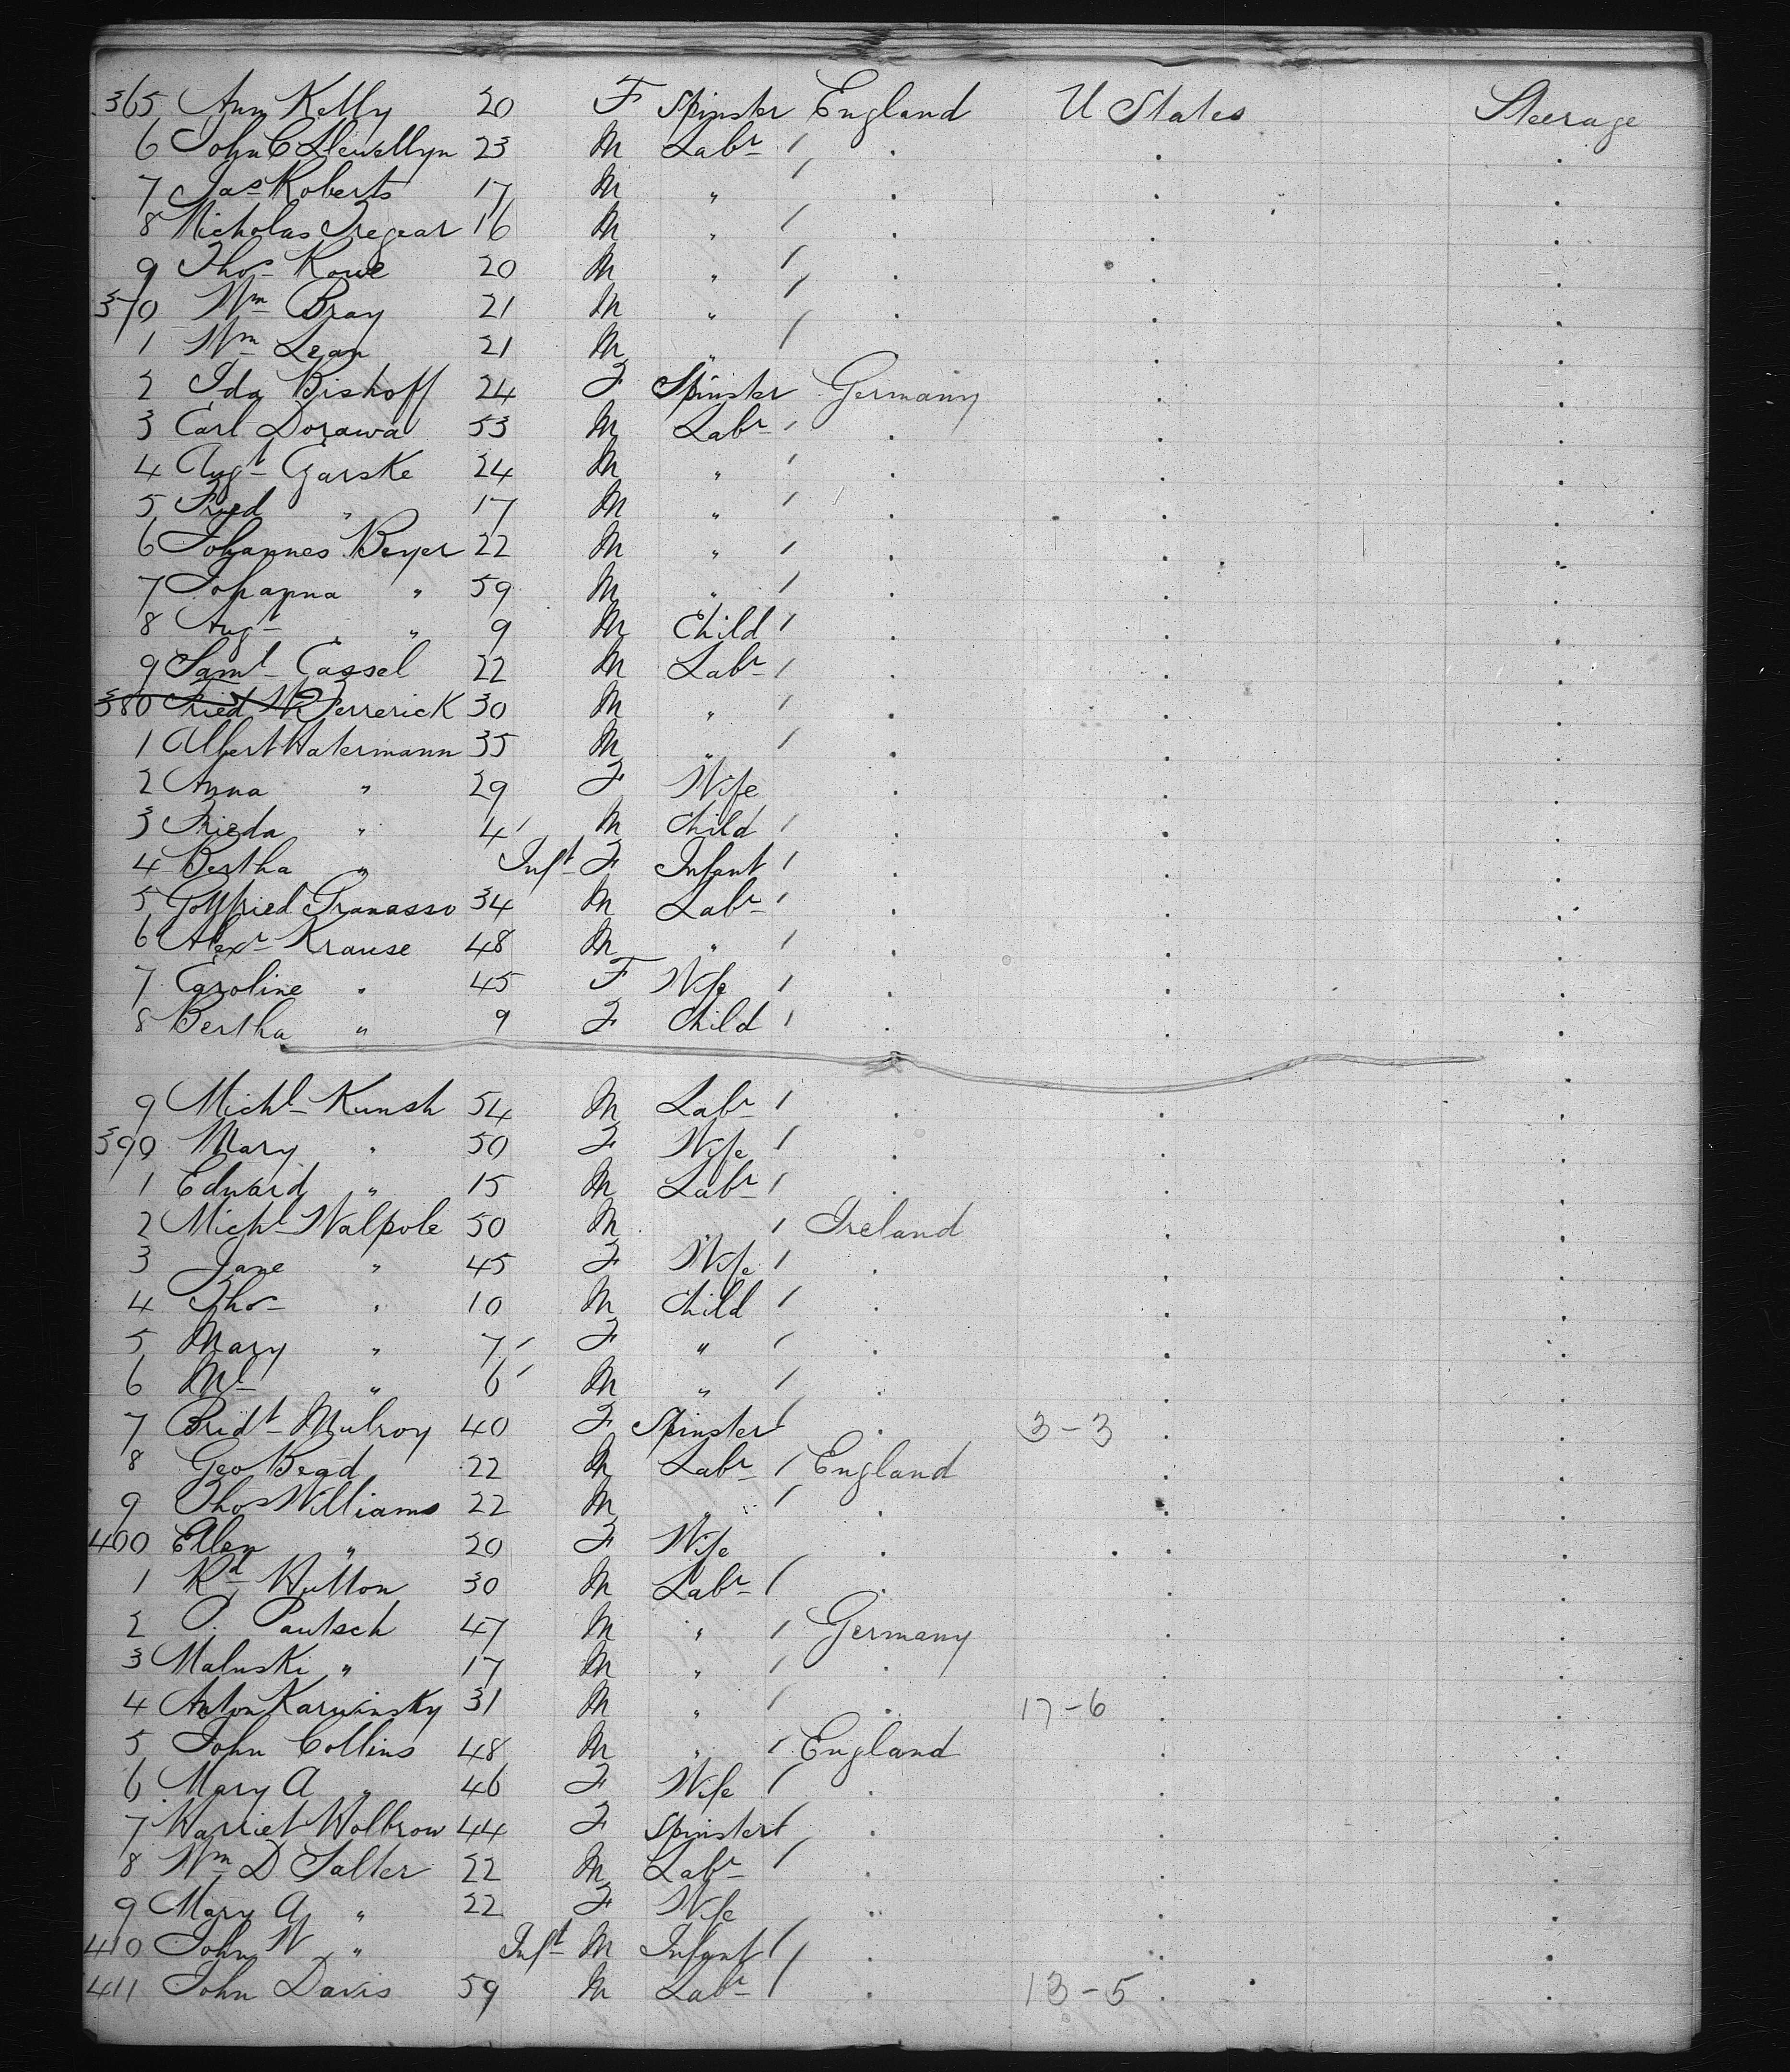 365 Ann Kelly 20 F Spinster England U States Steerage
6 John C Llewellyn 23 M Labr / . . .
7 Jas Roberts 17 M " / . . .
8 Micholas Tregear 16 M " / . . .
9 Thos Rowe 20 M " / . . .
370 Wm Bray 21 M " / . . .
1 Wm Lean 21 M " / . .
2 Ida Bishoff 24 F Spinster Germany . .
3 Carl Dorawa 53 M Labr / . . .
4 Augt Garske 24 M " / . . .
5 Fried " 17 M " / . . .
6 Johannes Beyer 22 M " / . . .
7 Johanna " 59 M " / . . .
8 Augt " 9 M Child / . . .
9 Saml Cassel 22 M Labr / . . .
380 Fried W Ferrerick 30 M " / . . .
1 Albert Watermann 35 M " / . . .
2 Anna " 29 F Wife . . .
3 Frieda " 4 / M Child / . . .
4 Bertha " Inft F Infant / . . .
5 Gottfried Granasso 34 M Labr / . . .
6 Alexr Krause 48 M " / . . .
7 Caroline " 45 F Wife / . . .
8 Bertha " 9 F Child / . . .
9 Michl Kunsh 54 M Labr / . . .
390 Mary " 50 F Wife / . . .
1 Edward " 15 M Labr / . . .
2 Michl Walpole 50 M " / Ireland . .
3 Jane " 45 F Wife / . . .
4 Thos " 10 M Child / . . .
5 Mary " 7 / F " / . . .
6 Ml " 6 / M " / . . .
7 Bridt Mulroy 40 F Spinster / . 3-3 . .
8 Geo Bead 22 M Labr / England . .
9 Thos Williams 22 M " / . . .
400 Ellen " 20 F Wife . . .
1 Rd Hutton 30 M Labr / . . .
2 P. Pautsch 47 M " / Germany . .
3 Maluski " 17 M " / . . .
4 Anton Karwinsky 31 M " / . 17-6 . .
5 John Collins 48 M " / England . .
6 Mary A " 46 F Wife / . . .
7 Harriet Holbrow 44 F Spinster / . . .
8 Wm D Salter 22 M Labr / . . .
9 Mary A " 22 F Wife . . .
410 John W " Inft M Infant / . . .
411 John Davis 59 M Labr / . 13-5 . .